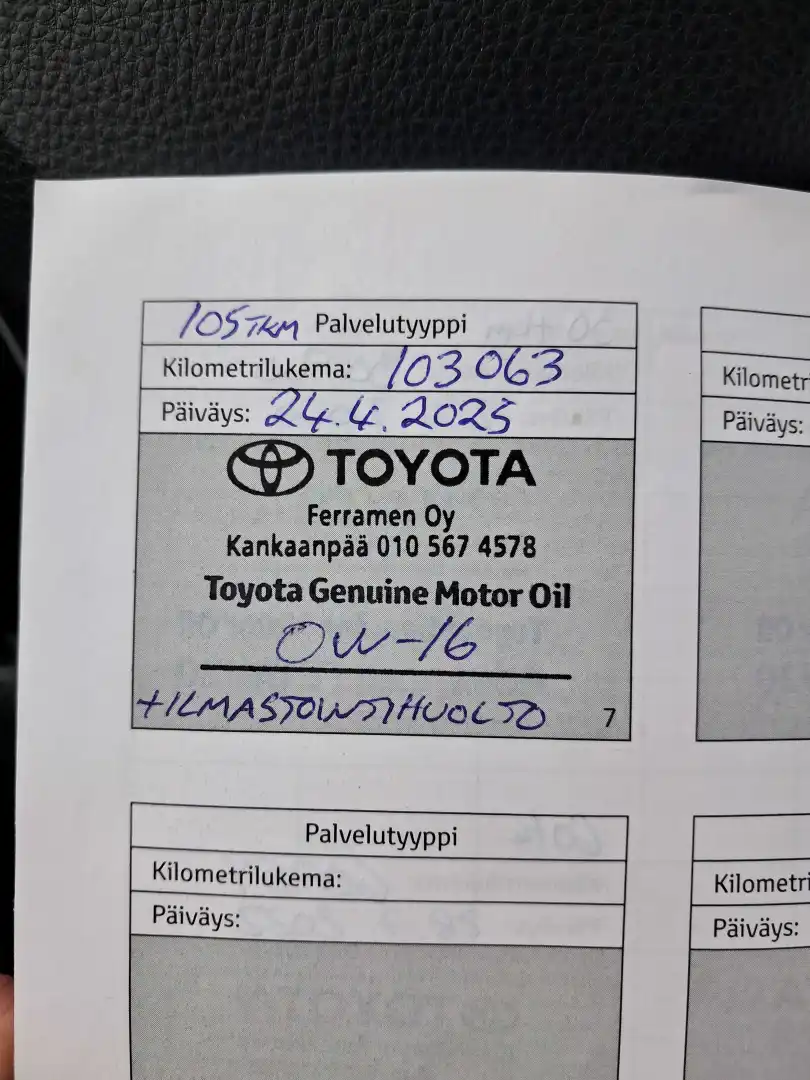 105TKM Palvelutyyppi
Kilometrilukema: 103 063
Päiväys: 24.4.2025
TOYOTA
Ferramen Oy
Kankaanpää 010 567 4578
Toyota Genuine Motor Oil
0W-16
+ILMASTOINTIHUOLTO
7
Kilometr
Päiväys:
Palvelutyyppi
Kilometrilukema:
Päiväys:
Kilometri
Päiväys: